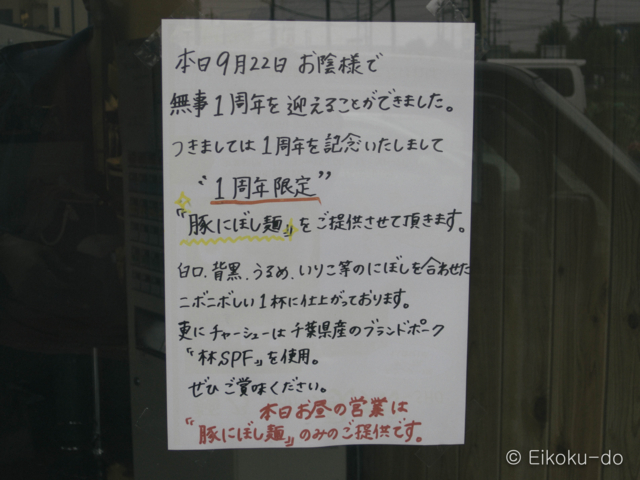 本日9月22日 お陰様で
無事1周年を迎えることができました。
つきましては1周年を記念いたしまして
“1周年限定”
『豚にぼし麺』をご提供させて頂きます。
白口、背黒、うるめ、いりこ等のにぼしを合わせた
ニボニボしい1杯に仕上がっております。
更にチャーシューは千葉県産のブランドポーク
『林SPF』を使用。
ぜひご賞味ください。
本日お昼の営業は
『豚にぼし麺』のみのご提供です。
© Eikoku-do